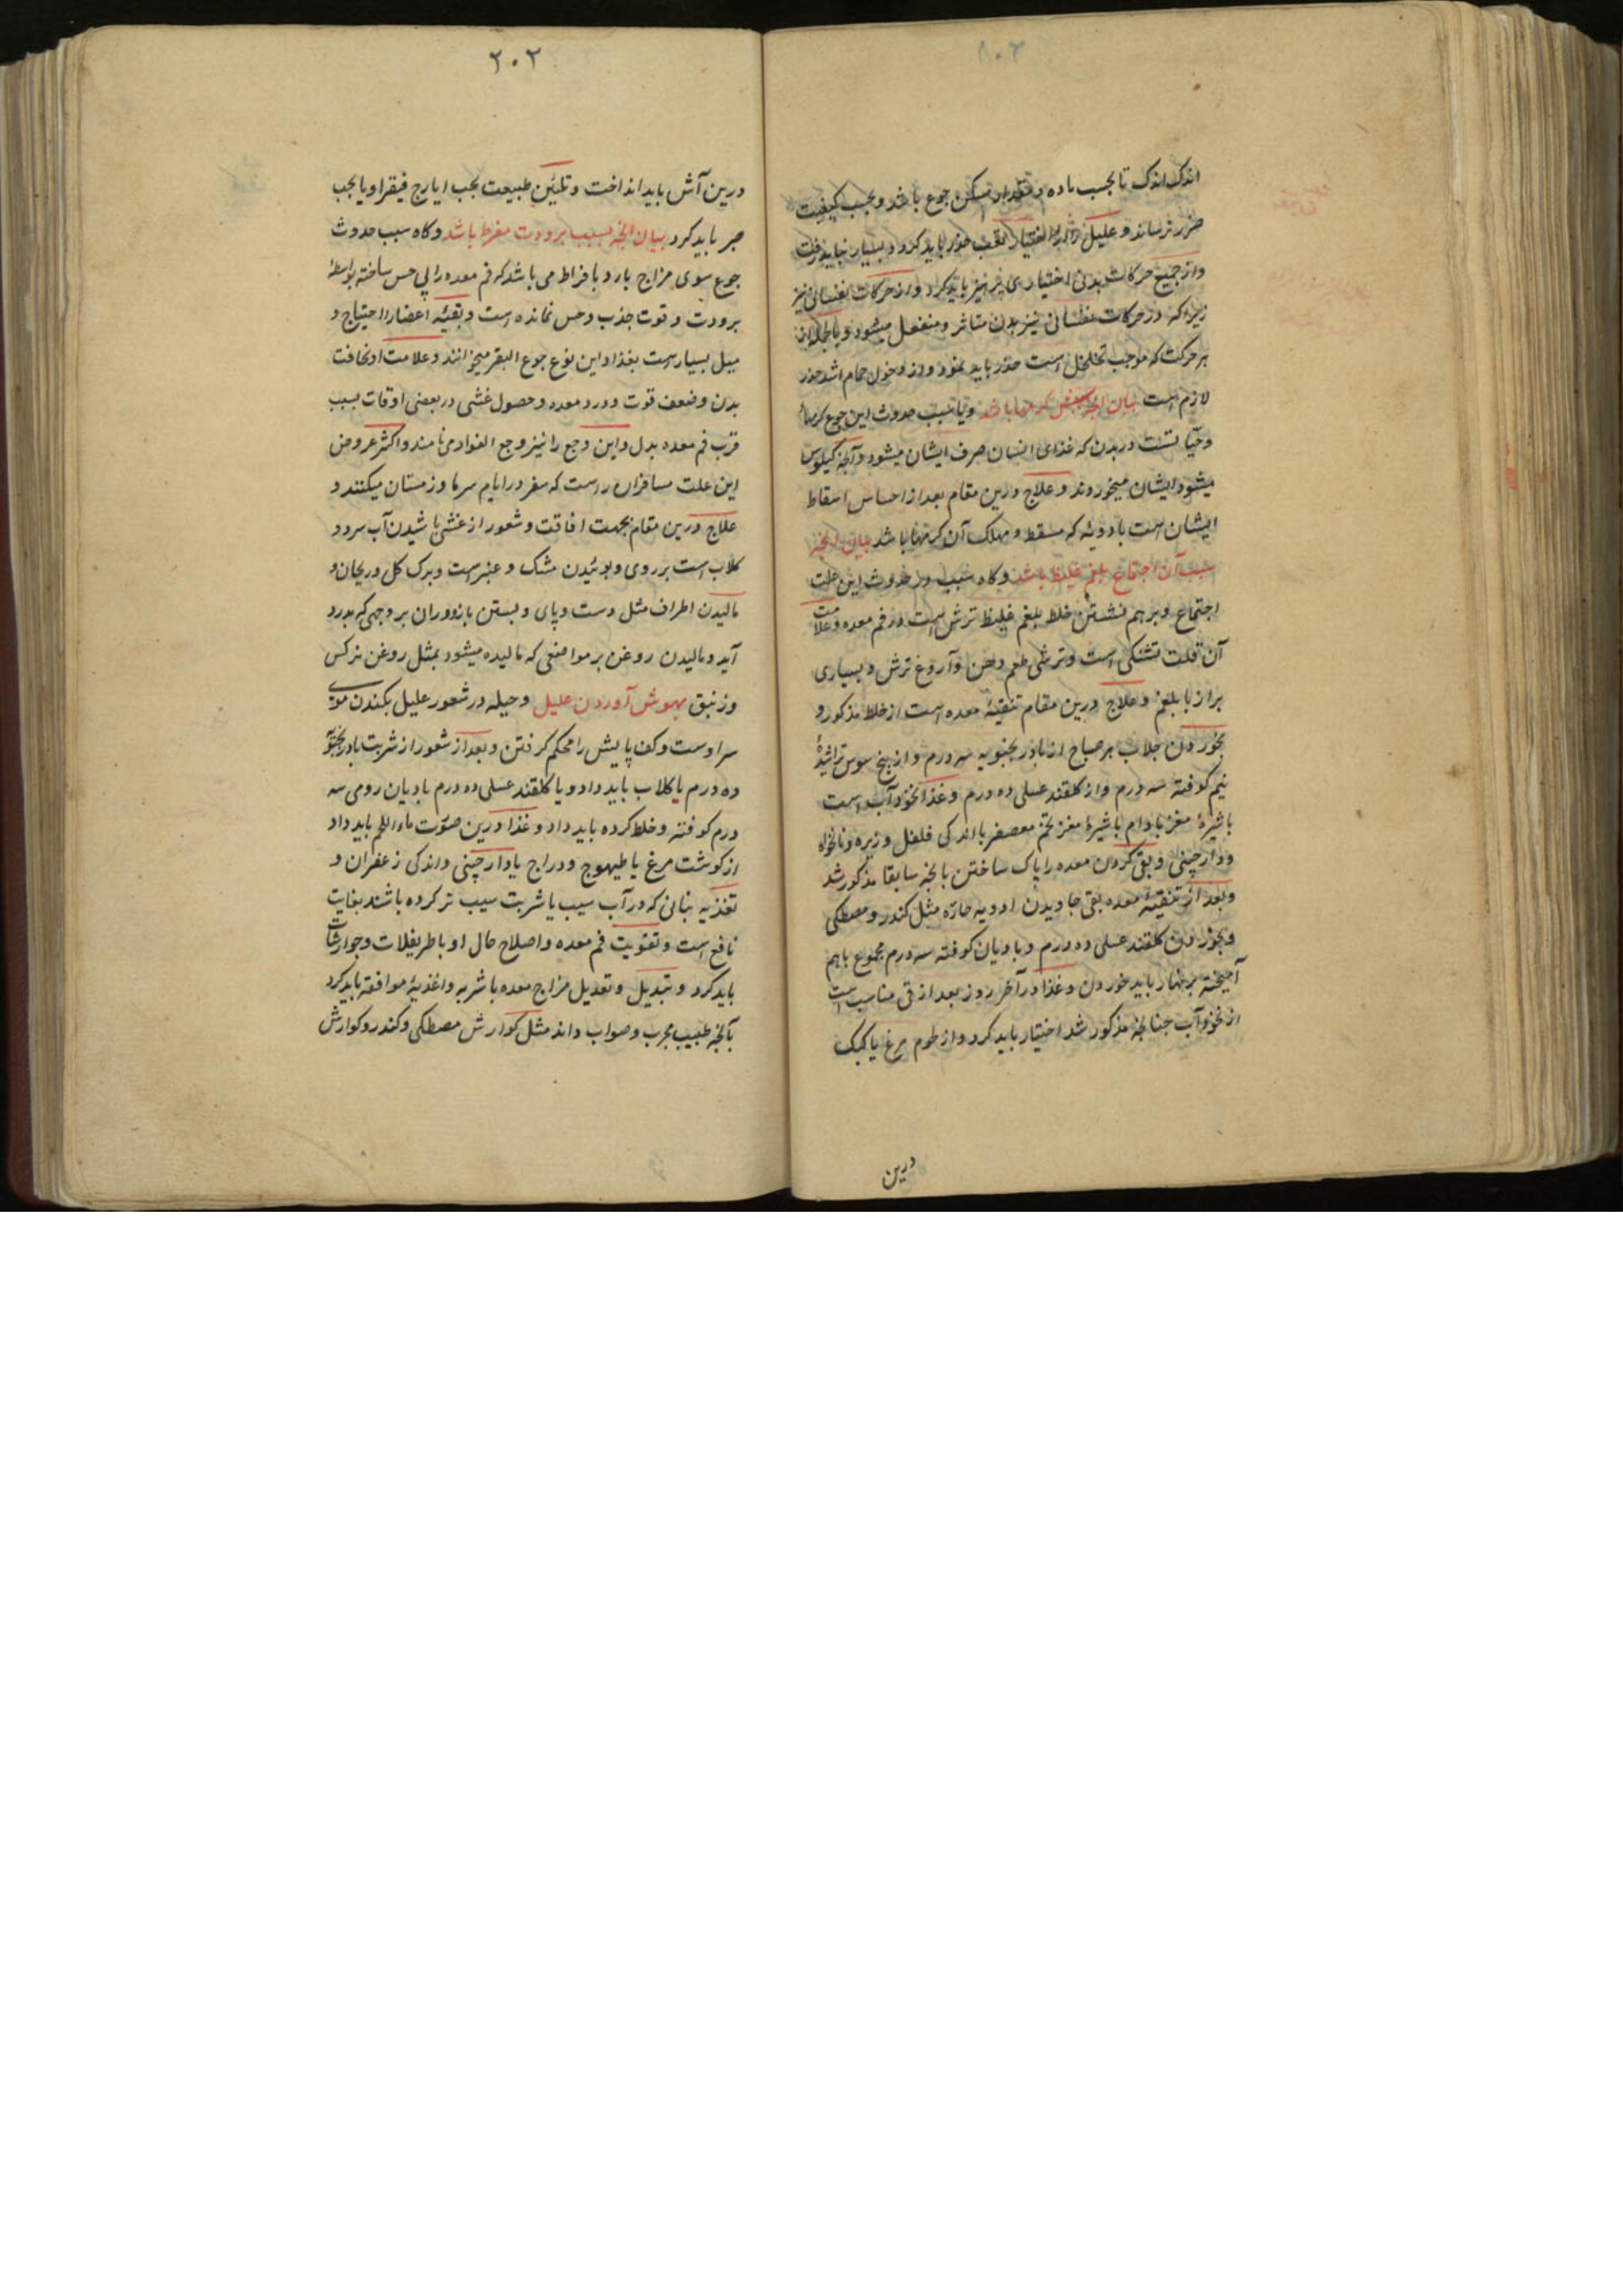 اندک اندک تا بحسب ماده و مقدار مسکن جوع باشد و بحسب کیفیت
ضرر نرساند و علیل را از اختیار تعب حذر باید کرد و بسیار نباید رفت
و از جمیع حرکات بدنی اختیاری پرهیز باید کرد و از حرکات نفسانی نیز
زیرا که در حرکات نفسانی نیز بدن متاثر و منفعل میشود و بالجمله از
هر حرکت که موجب تحلحل است حذر باید نمود و از دخول حمام اشد حذر
لازم است بیان آنچه بسبب کرمها باشد و یا سبب حدوث این جوع کرمها
و حیاتست در بدن که غذای انسان صرف ایشان میشود و آنچه کیلوس
میشود ایشان میخورند و علاج درین مقام بعد از احساس اسقاط
ایشان است با دویهٔ که مسقط و مهلک آن کرمها باشد بیان آنچه
سبب آن اجتماع بلغم غلیظ باشد و کاه سبب در حدوث این علت
اجتماع و برهم نشستن خلط بلغم غلیظ ترش است در فم معده و علامت
آن قلت تشنکی است و ترشی طعم دهن و آروغ ترش و بسیاری
براز با بلغم و علاج درین مقام تنقیهٔ معده است از خلط مذکور و
بخوردن جلاب هر صباح از بادرنجبویه سه درم و از بیخ سوس تراشیدهٔ
نیم کوفته سه درم و از کلقند عسلی ده درم و غذا نخودآب است
با شیرهٔ مغز بادام با شیرهٔ مغز تخم معصفر با اندکی فلفل و زیره و نانخواه
و دارچینی و بقی کردن معده را پاک ساختن بآنچه سابقا مذکور شد
و بعد از تنقیهٔ معده بقی جاویدن ادویه حاره مثل کندر و مصطکی
و بخوردن کلقند عسلی ده درم و بادیان کوفته سه درم مجموع باهم
آمیخته بر نهار باید خوردن و غذا در آخر روز بعد از قی مناسب است
از نخودآب چنانچه مذکور شد اختیار باید کرد و از لحوم مرغ یا کبک
درین
۲۰۲
درین آش باید انداخت و تلیین طبیعت بحب ایارج فیقرا و یا بحب
صبر باید کرد بیان آنچه بسبب برودت مفرط باشد و کاه سبب حدوث
جوع سوی مزاج بارد با فراط می باشد که فم معده را بی حس ساخته بواسطهٔ
برودت و قوت جذب و حس نمانده است و بقیه اعضا را احتیاج و
میل بسیار است بغذا و این نوع جوع البقر میخوانند و علامت او نحافت
بدن و ضعف قوت و درد معده و حصول غشی در بعضی اوقات بسبب
قرب فم معده بدل و این وجع را نیز وجع الفواد می نامند و اکثر عروض
این علت مسافران راست که سفر در ایام سرما و زمستان میکنند و
علاج درین مقام بجهت افاقت و شعور از غشی پاشیدن آب سرد و
کلاب است بر روی و بوئیدن مشک و عنبر است و برک کل و ریحان و
مالیدن اطراف مثل دست و پای و بستن بازو و ران بر وجهی که بدرد
آید و مالیدن روغن بر مواضعی که مالیده میشود بمثل روغن نرکس
و زنبق بهوش آوردن علیل و حیله در شعور علیل بکندن موی
سر اوست و کف پایش را محکم کرفتن و بعد از شعور از شربت بادرنجبویه
ده درم با کلاب باید داد و یا کلقند عسلی ده درم بادیان رومی سه
درم کوفته و خلط کرده باید داد و غذا درین صورت ماء اللحم باید داد
از کوشت مرغ یا طیهوج و دراج با دارچینی و اندکی زعفران و
تغذیه بنانی که در آب سیب یا شربت سیب تر کرده باشند بغایت
نافع است و تقویت فم معده و اصلاح حال او با طریفلات و جوارشات
باید کرد و تبدیل و تعدیل مزاج معده باشربه و اغذیهٔ موافقه باید کرد
بآنچه طبیب مجرب و صواب داند مثل کوارش مصطکی و کندر و کوارش